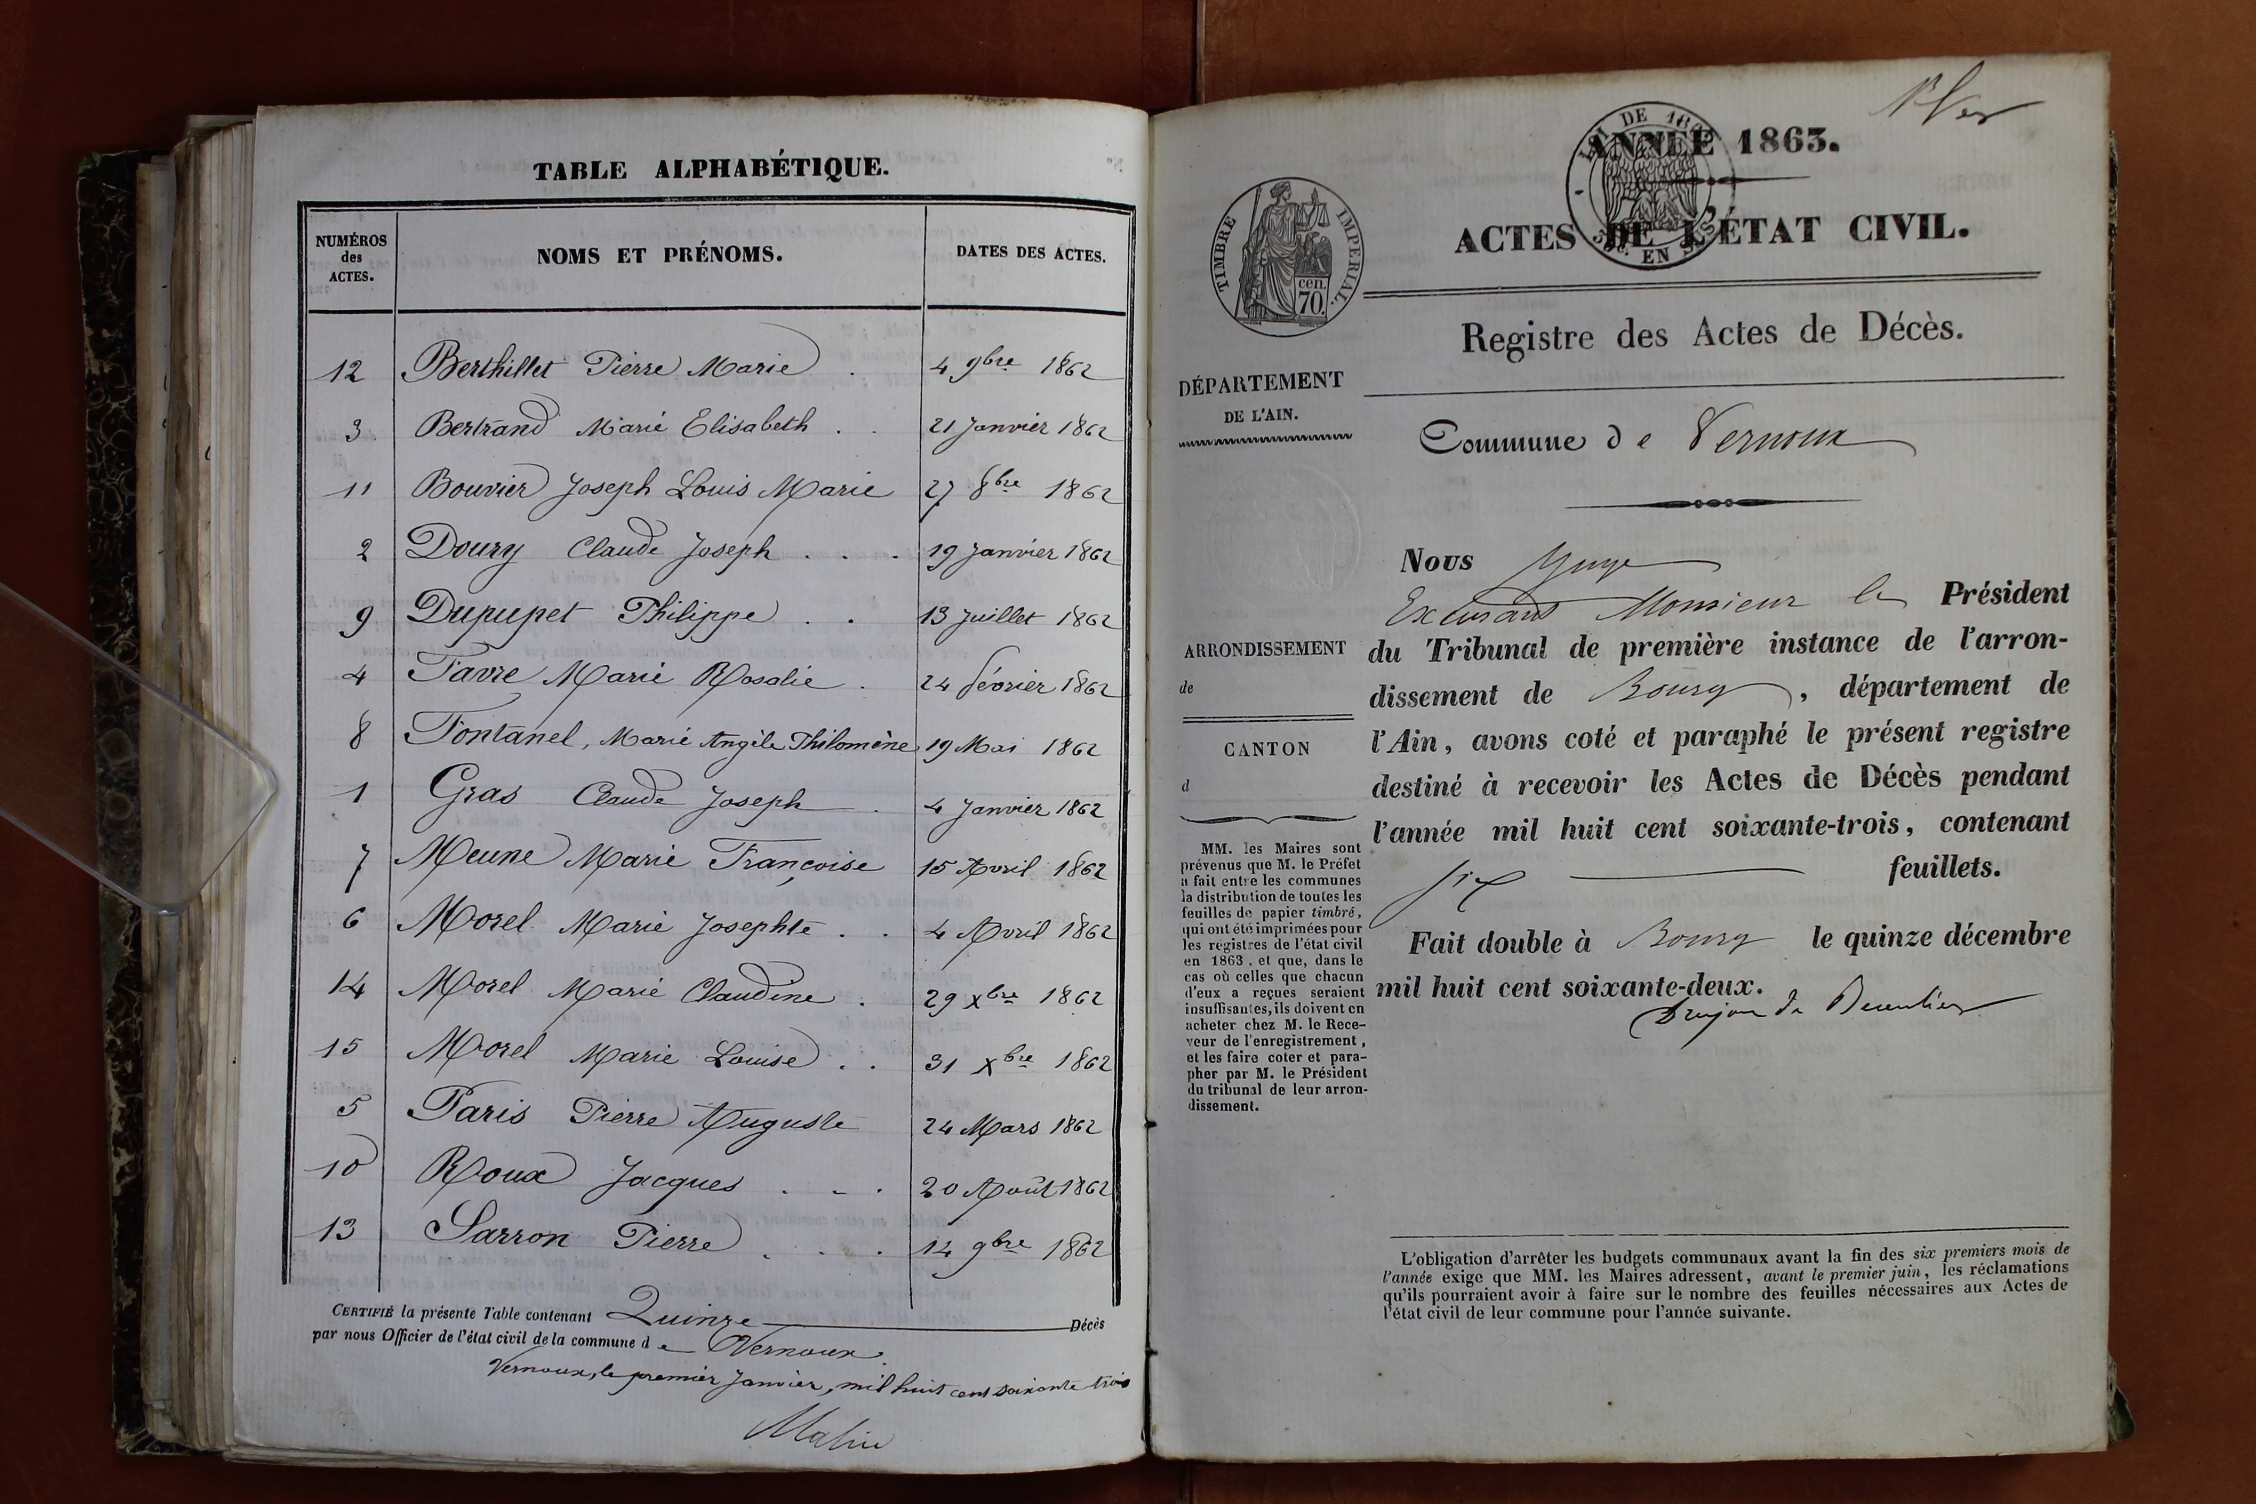 TABLE ALPHABÉTIQUE.
NUMÉROS des ACTES. NOMS ET PRÉNOMS. DATES DES ACTES.
12 Berthillet Pierre Marie . 4 9bre 1862
3 Bertrand Marie Elisabeth . . 21 Janvier 1862
11 Bouvier Joseph Louis Marie 27 8bre 1862
2 Doury Claude Joseph . . . 19 Janvier 1862
9 Dupupet Philippe . . 13 Juillet 1862
4 Favre Marie Rosalie . 24 février 1862
8 Fontanel, Marie Angèle Philomène 19 Mai 1862
1 Gras Claude Joseph . 4 Janvier 1862
7 Meune Marie Françoise 15 Avril 1862
6 Morel Marie Josephte . . 4 Avril 1862
14 Morel Marie Claudine . 29 xbre 1862
15 Morel Marie Louise . . 31 xbre 1862
5 Paris Pierre Auguste 24 Mars 1862
10 Roux Jacques . . . 20 Août 1862
13 Sarron Pierre . . . 14 9bre 1862
CERTIFIÉ la présente Table contenant Quinze Décès
par nous Officier de l'état civil de la commune de Vernoux.
Vernoux, le premier Janvier, mil huit cent soixante trois
ANNÉE 1863.
LOI DE
EN SUS
ACTES DE L'ÉTAT CIVIL.
TIMBRE IMPÉRIAL.
cen.
70.
Registre des Actes de Décès.
DÉPARTEMENT
DE L'AIN.
Commune de Vernoux
ARRONDISSEMENT
de
CANTON
d
MM. les Maires sont
prévenus que M. le Préfet
a fait entre les communes
la distribution de toutes les
feuilles de papier timbré,
qui ont été imprimées pour
les registres de l'état civil
en 1863, et que, dans le
cas où celles que chacun
d'eux a reçues seraient
insuffisantes, ils doivent en
acheter chez M. le Rece-
veur de l'enregistrement,
et les faire coter et para-
pher par M. le Président
du tribunal de leur arron-
dissement.
Nous Juge
Excusant Monsieur le Président
du Tribunal de première instance de l'arron-
dissement de Bourg, département de
l'Ain, avons coté et paraphé le présent registre
destiné à recevoir les Actes de Décès pendant
l'année mil huit cent soixante-trois, contenant
six feuillets.
Fait double à Bourg le quinze décembre
mil huit cent soixante-deux.
L'obligation d'arrêter les budgets communaux avant la fin des six premiers mois de
l'année exige que MM. les Maires adressent, avant le premier juin, les réclamations
qu'ils pourraient avoir à faire sur le nombre des feuilles nécessaires aux Actes de
l'état civil de leur commune pour l'année suivante.